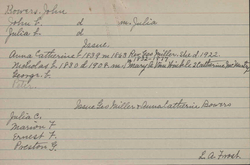 Bowers, John
John C. d m. Julia
Julia C. d
Issue
Anna Catherine b 1839 m 1863 Rev Geo Miller She d 1922
Nicholas b. 1830 d 1904 m Mary & Catherine
George F.
Peter
Issue Geo Miller & Anna Catherine Bowers
Julia C.
Marion F.
Ernest F.
Preston G.
L. A. Frost